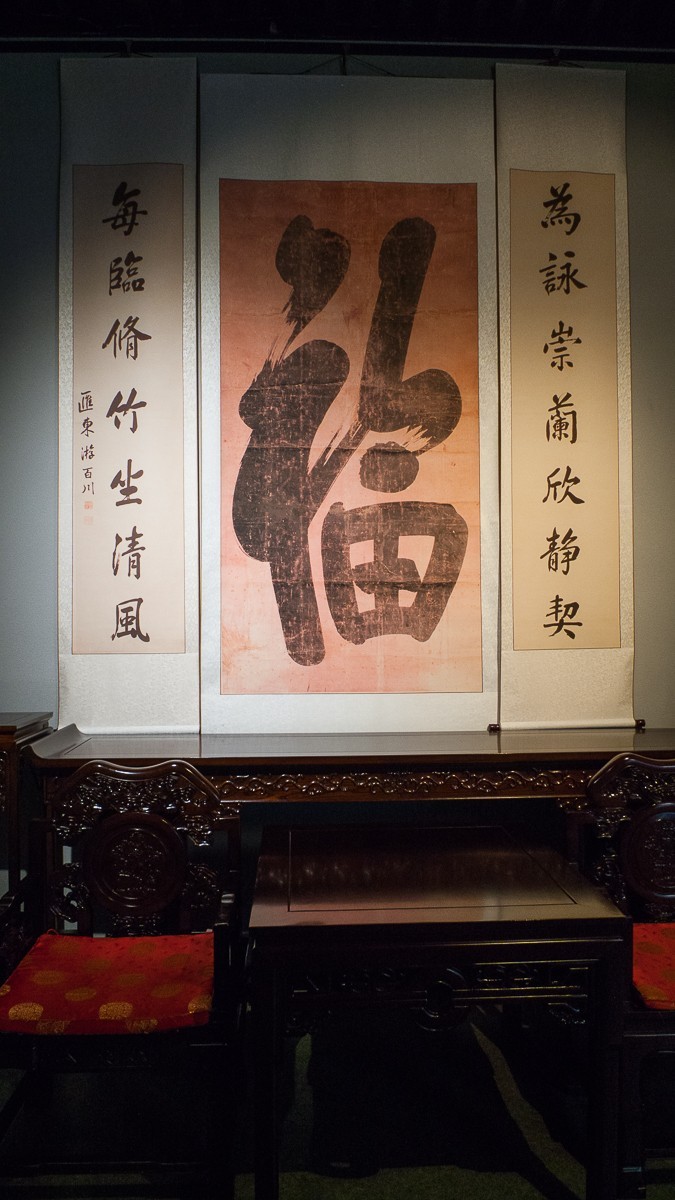 為詠崇蘭欣静契
福
每臨脩竹坐清風
匯東游百川